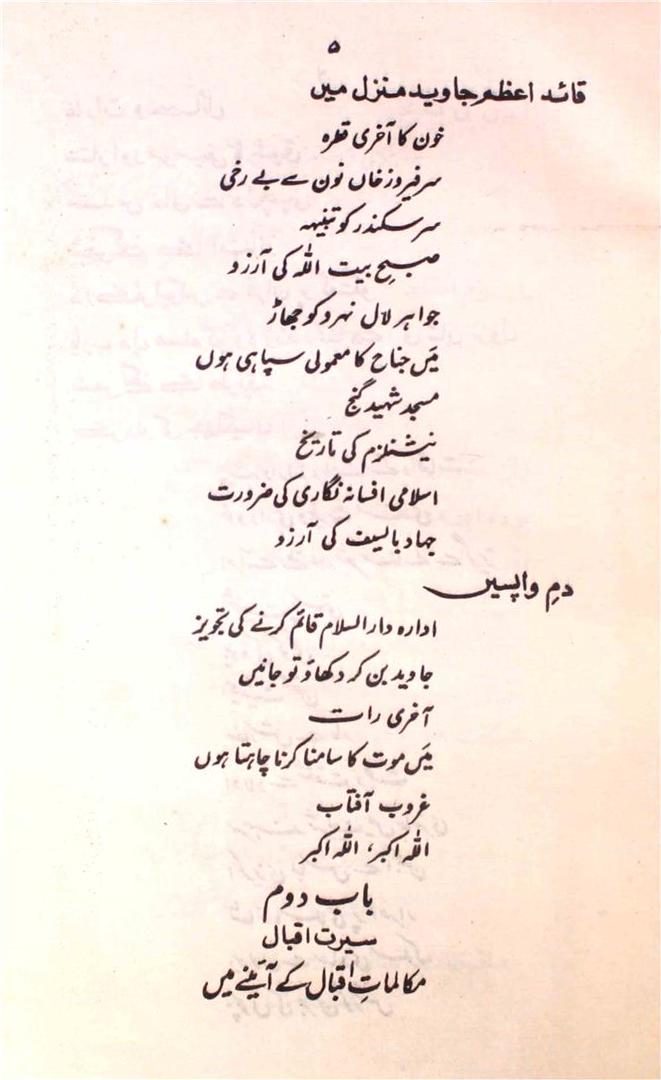 ۵
قائد اعظم جاوید منزل میں
خون کا آخری قطرہ
سر فیروز خاں نون سے بے رخی
سر سکندر کو تنبیہہ
صبحِ بیت اللہ کی آرزو
جواہر لال نہرو کو جھاڑ
مَیں جناح کا معمولی سپاہی ہوں
مسجد شہید گنج
نیشنلزم کی تاریخ
اسلامی افسانہ نگاری کی ضرورت
جہاد بالسیف کی آرزو
دمِ واپسیں
ادارہ دارالسلام قائم کرنے کی تجویز
جاوید بن کر دکھاؤ تو جانیں
آخری رات
مَیں موت کا سامنا کرنا چاہتا ہوں
غروب آفتاب
اللہ اکبر، اللہ اکبر
باب دوم
سیرت اقبال
مکالماتِ اقبال کے آئینے میں